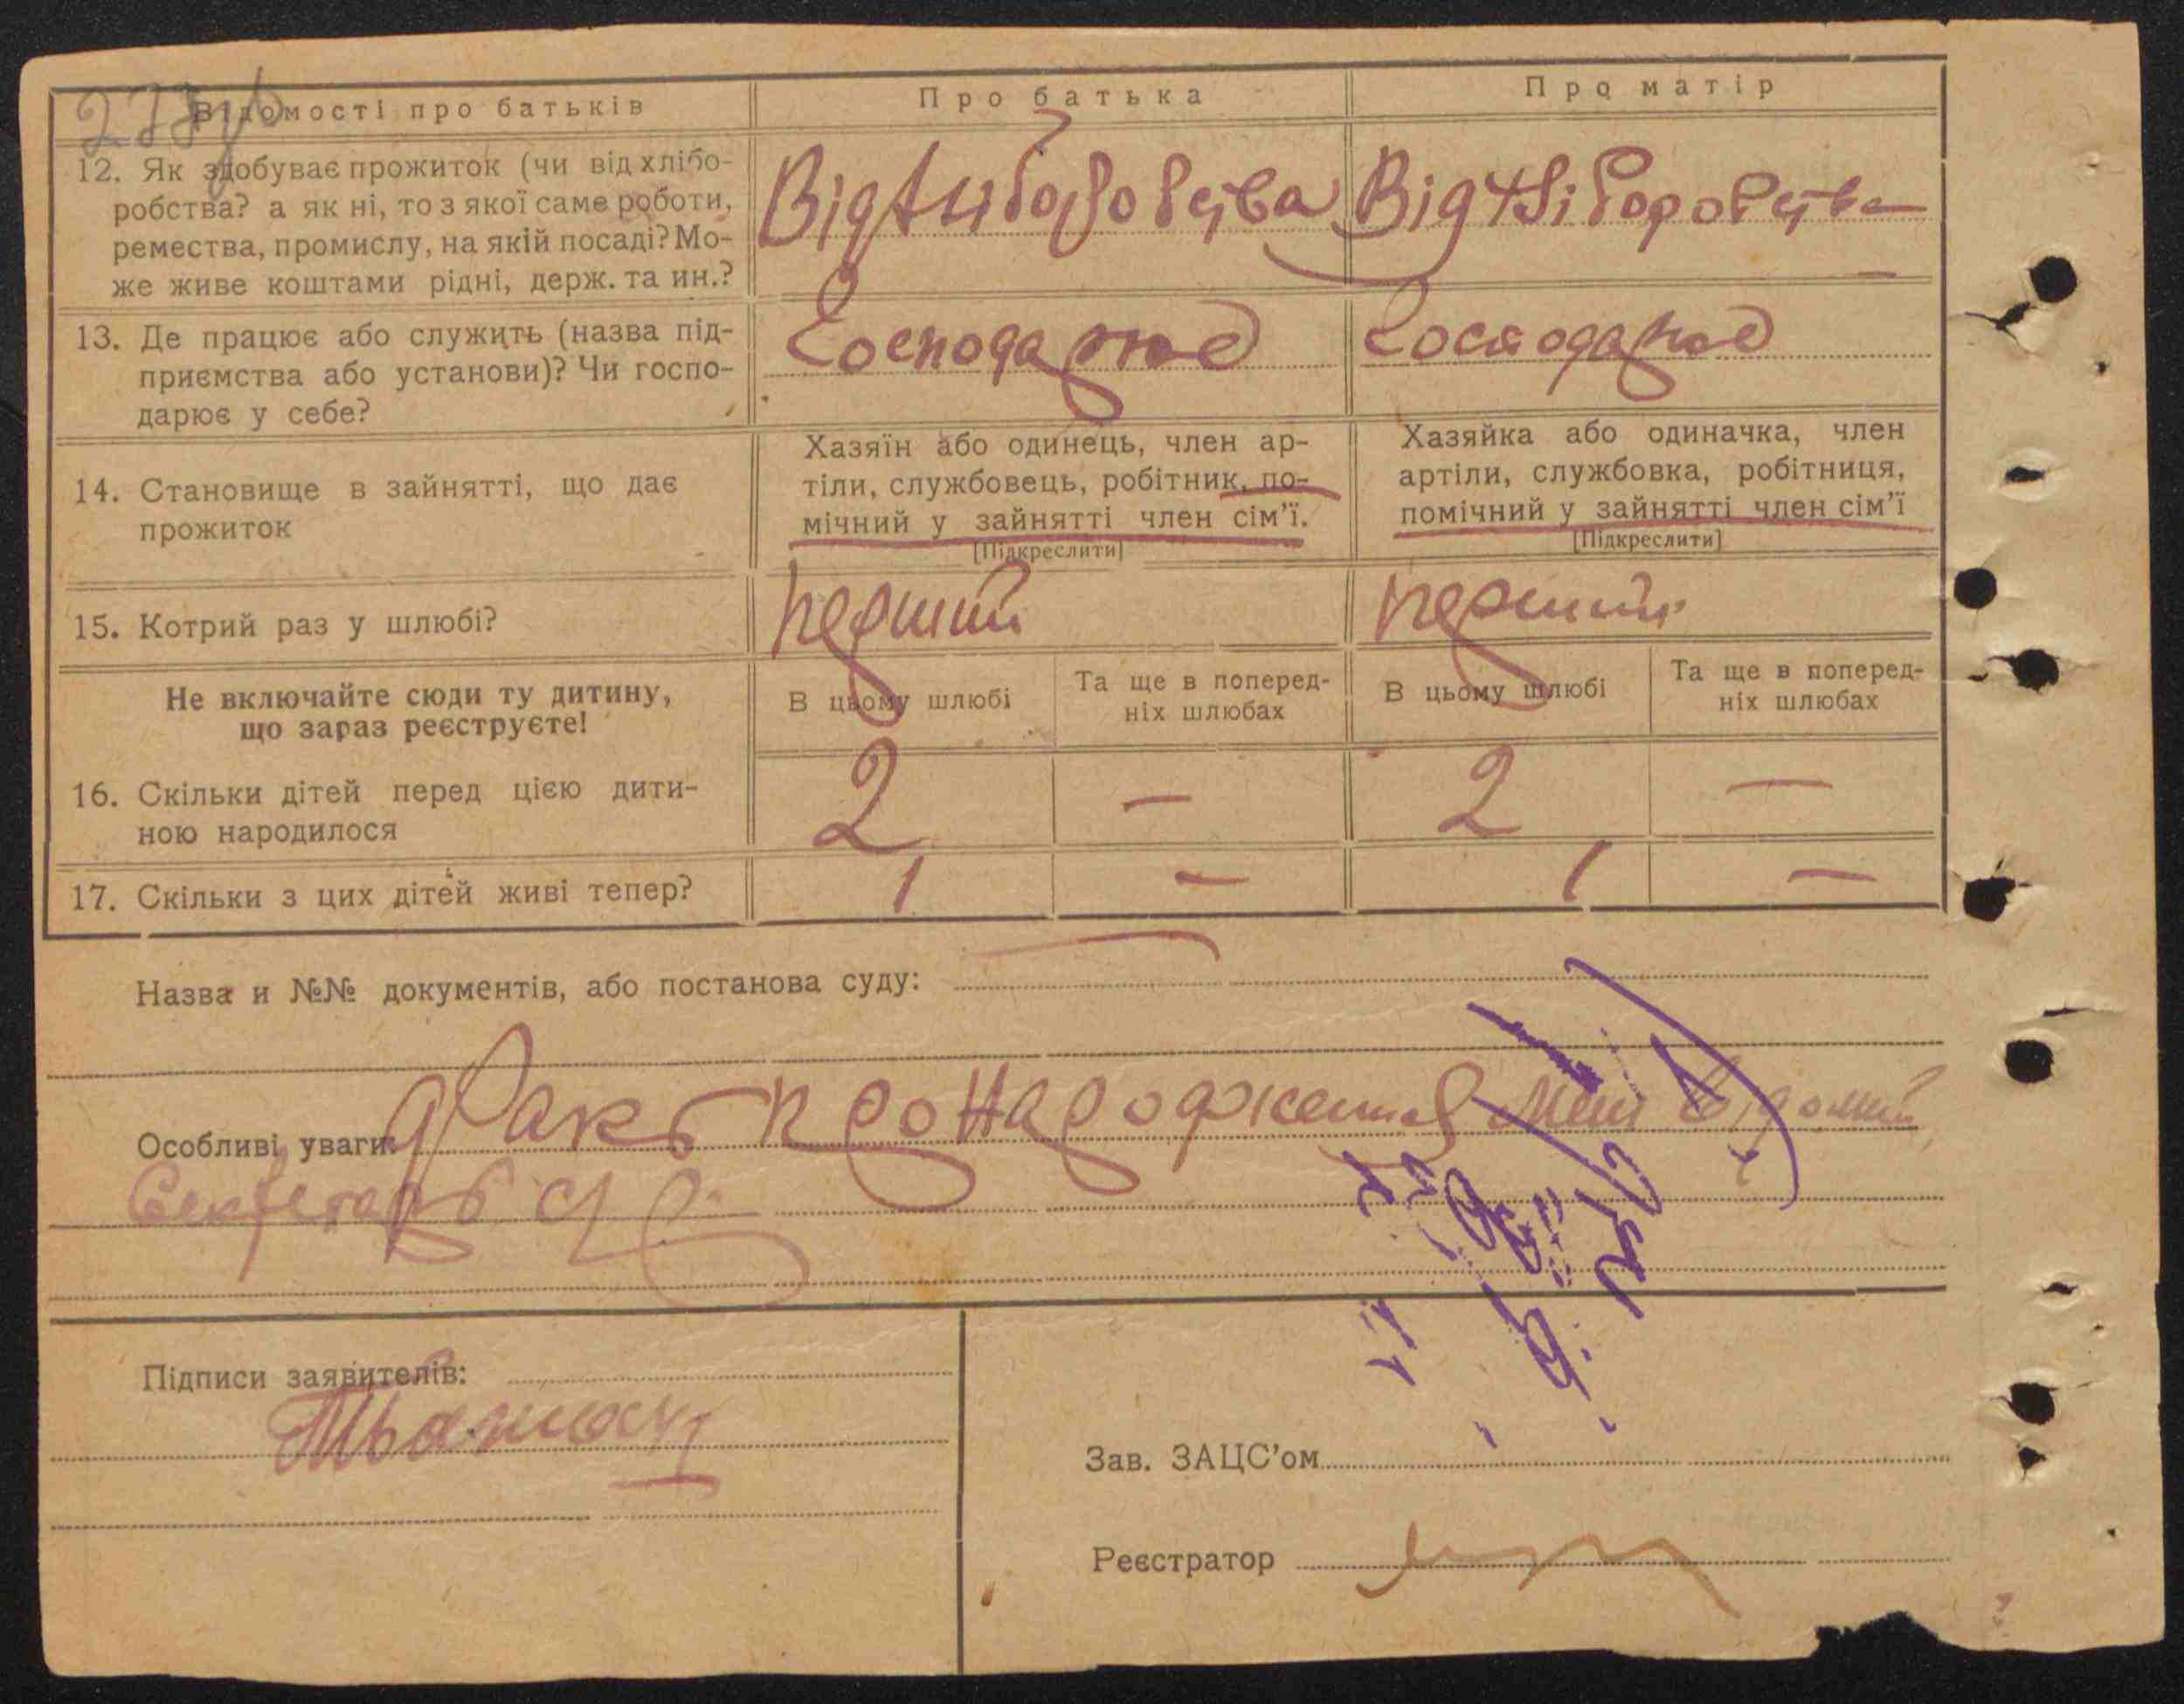 Відомості про батьків
Про батька
Про матір
12. Як здобуває прожиток (чи від хлібо-
робства? а як ні, то з якої саме роботи,
ремества, промислу, на якій посаді? Мо-
же живе коштами рідні, держ. та ин.?
13. Де працює або служить (назва під-
приємства або установи)? Чи госпо-
дарює у себе?
Господарює
Господарює
14. Становище в зайнятті, що дає
прожиток
Хазяїн або одинець, член ар-
тіли, службовець, робітник, по-
мічний у зайнятті член сім’ї.
[Підкреслити]
Хазяйка або одиначка, член
артіли, службовка, робітниця,
помічний у зайнятті член сім’ї
[Підкреслити]
15. Котрий раз у шлюбі?
перший
перший
Не включайте сюди ту дитину,
що зараз реєструєте!
В цьому шлюбі
Та ще в поперед-
ніх шлюбах
В цьому шлюбі
Та ще в поперед-
ніх шлюбах
16. Скільки дітей перед цією дити-
ною народилося
2 — 2 —
17. Скільки з цих дітей живі тепер?
1 — 1 —
Назва и №№ документів, або постанова суду:
Особливі уваги: Факт мені відомий
Секретарь
Підписи заявителів:
Зав. ЗАЦС’ом
Реєстратор